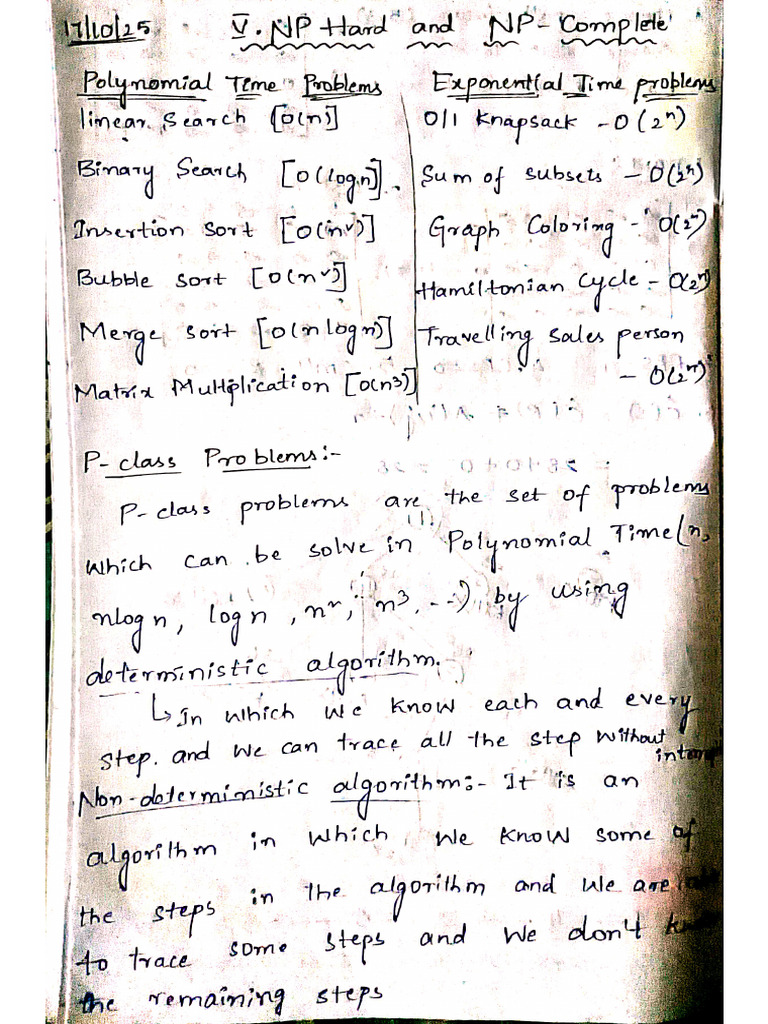 17/10/25 V. NP Hard and NP-Complete
Polynomial Time Problems
linear Search [O(n)]
Binary Search [O(log n)].
Insertion sort [O(n²)]
Bubble sort [O(n²)]
Merge sort [O(n log n)]
Matrix Multiplication [O(n³)]
Exponential Time problems
0/1 Knapsack - O(2ⁿ)
Sum of subsets - O(2ⁿ)
Graph Coloring - O(2ⁿ)
Hamiltonian Cycle - O(2ⁿ)
Travelling sales person
- O(2ⁿ)
P-class Problems:-
P-class problems are the set of problems
which can be solve in Polynomial Time (n,
nlog n, log n, n², n³, --) by using
deterministic algorithm.
↳ In which we know each and every
step. and we can trace all the step without
Non-deterministic algorithm:- It is an
algorithm in which we know some of
the steps in the algorithm and we are
to trace some steps and we don't
the remaining steps